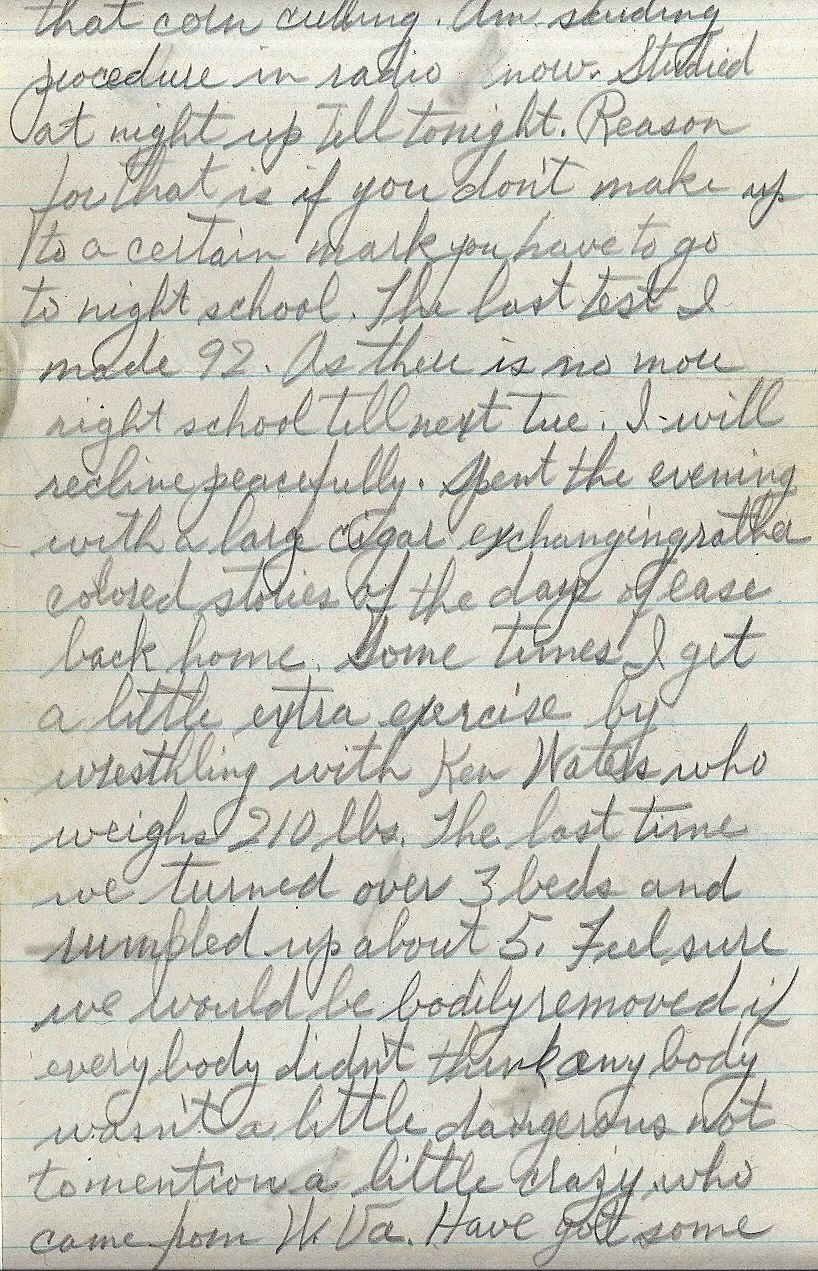 that corn cutting. Am studing
procedure in radio now. Studied
at night up till tonight. Reason
for that is if you don't make up
to a certain mark you have to go
to night school. The last test I
made 92. As there is no more
night school till next tue. I will
recline peacefully. Spent the evening
with a large cigar exchanging rather
colored stories of the days of ease
back home. Some times I get
a little extra exercise by
wresthling with Ken Waters who
weighs 210 lbs. The last time
we turned over 3 beds and
rumpled up about 5. Feel sure
we would be bodily removed if
every body didn't think any body
wasn't a little dangerous not
to mention a little crazy who
came from W. Va. Have got some